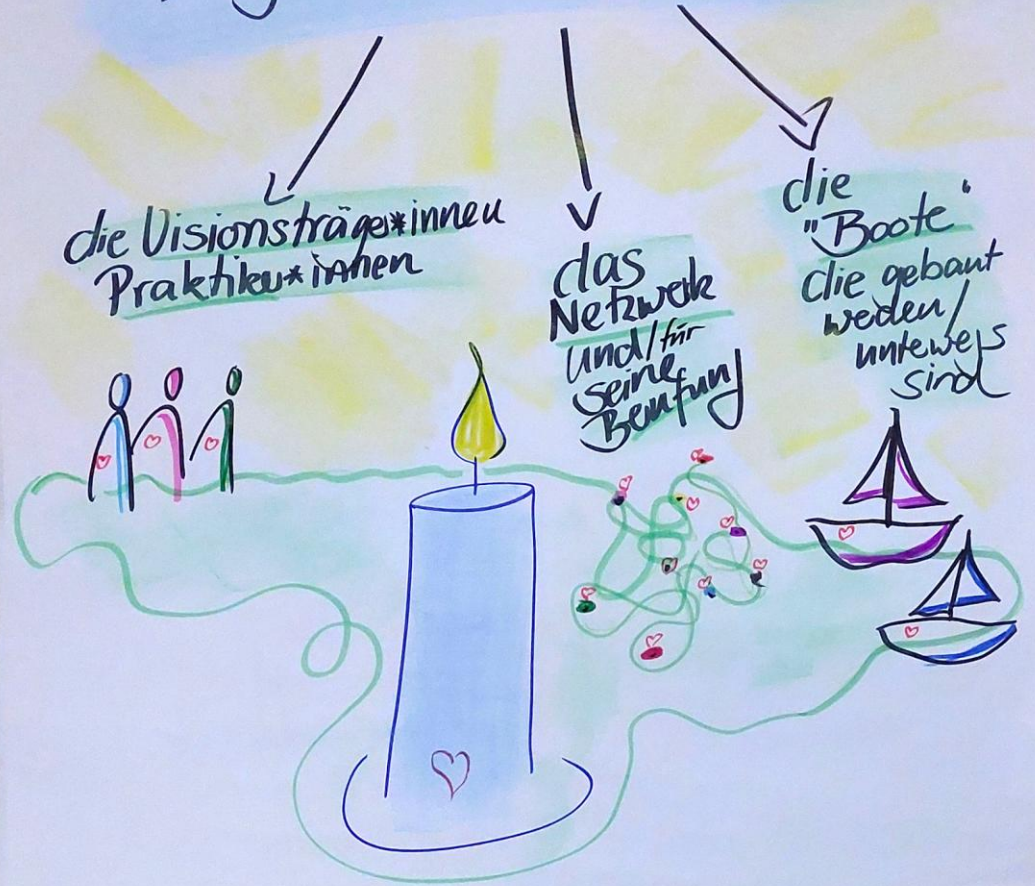 die Visionsträger*innen
Praktiker*innen
das
Netzwerk
und/für
seine
Berufung
die
"Boote"
die gebaut
werden/
unterwegs
sind